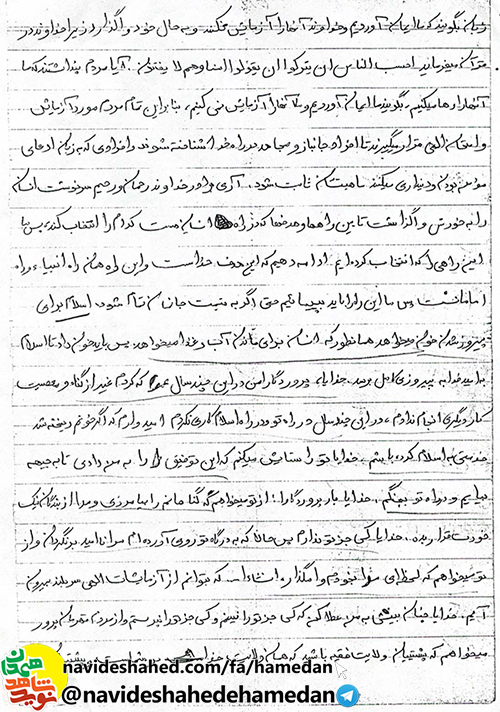 زبان بگویند که ما ایمان آوردیم و خداوند آنها را آزمایش نکند و به حال خود واگذارد زیرا خداوند در
قرآن میفرماید احسب الناس ان یترکوا ان یقولوا امنا و هم لا یفتنون. آیا مردم پنداشتند که ما
آنها را رها میکنیم، بگویند ما ایمان آوردیم و ما آنها را آزمایش نمی کنیم، بنابراین تمام مردم مورد آزمایش
و امتحان الهی قرار میگیرند تا افراد جانباز و مجاهد در راه خدا شناخته شوند و افرادی که به زبان ادعای
مؤمن بودن و دینداری میکنند ماهیتشان ثابت شود. آری برادر خداوند رحمان و رحیم سرنوشت انسان
را به خودش واگذاشت تا بین راهها و هدفها که در راه انسان هست کدام را انتخاب کند، پس بیا
این راهی را که انتخاب کرده ایم ادامه دهیم که این هدف خداست و این راه همان راه انبیاء، راه
امامانست پس ما این راه را باید بپیمائیم حتی اگر به قیمت جانمان تمام شود. اسلام برای
پیروز شدن خون میخواهد همانطور که انسان برای ماندن آب و غذا میخواهد پس باید خون داد تا اسلام
به امید خدا به پیروزی کامل برسد. خدایا، پروردگارا من در این چند سال عمر که کردم غیر از گناه و معصیت
کار دیگری انجام ندادم، در این چند سال در راه تو و در راه اسلام کاری نکردم امیدوارم که اگر خونم ریخته شد
خدمتی به اسلام کرده باشم. خدایا تو را ستایش میکنم که این توفیق را به من دادی تا به جبهه
بیایم و در راه تو بجنگم. خدایا بار پروردگارا: از تو میخواهم که گناهانم را بیامرزی و مرا از بندگان نیک
خودت قرار بده. خدایا کسی جز تو ندارم پس حالا که به درگاه تو روی آورده ام مرا ناامید برنگردان و از
تو میخواهم که لحظه ای مرا بخودم وامگذار، انشاءاله که بتوانم از آزمایشات الهی سربلند بیرون
آیم. خدایا چنان بینشی به من عطا کن که کسی جز تو را نبینم و کسی جز تو را نپرستم و از مردم قهرمان پرور
میخواهم که پشتیبان ولایت فقیه باشید که همان ولایت خدا
navideshahed.com/fa/hamedan
@navideshahedehamedan
نوید شاهد همدان